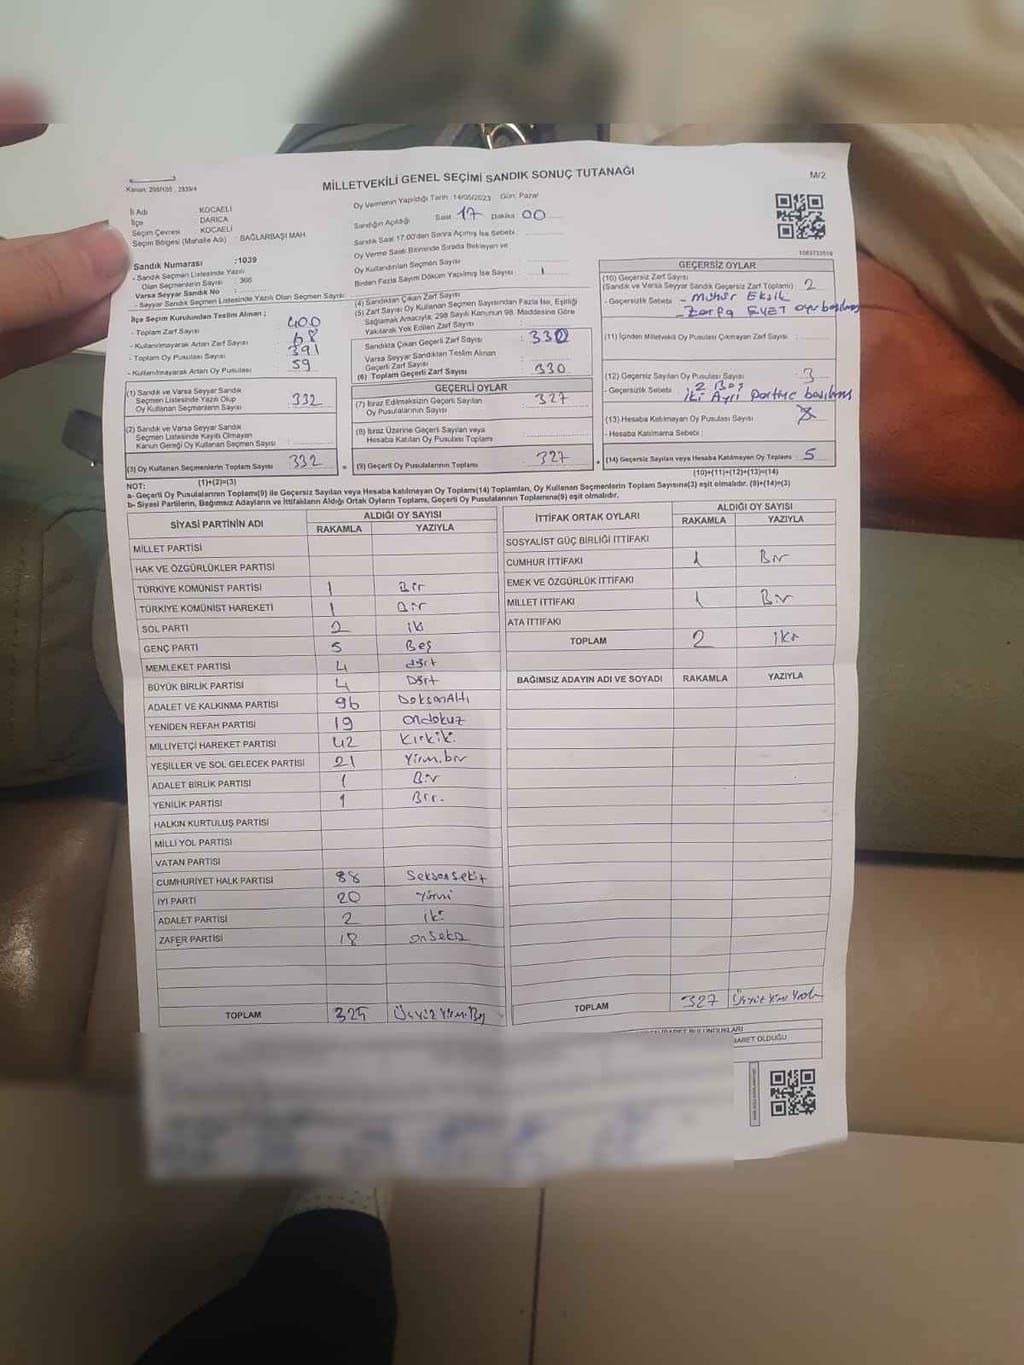 Kanun: 298/105 , 2839/4
MİLLETVEKİLİ GENEL SEÇİMİ SANDIK SONUÇ TUTANAĞI
M/2
İl Adı KOCAELİ
İlçe DARICA
Seçim Çevresi KOCAELİ
Seçim Bölgesi (Mahalle Adı) BAĞLARBAŞI MAH.
Sandık Numarası :1039
- Sandık Seçmen Listesinde Yazılı
Olan Seçmenlerin Sayısı
Varsa Seyyar Sandık No :
- Seyyar Sandık Seçmen Listesinde Yazılı Olan Seçmen Sayısı
İlçe Seçim Kurulundan Teslim Alınan ;
- Toplam Zarf Sayısı 400
- Kullanılmayarak Artan Zarf Sayısı 68
- Toplam Oy Pusulası Sayısı 391
- Kullanılmayarak Artan Oy Pusulası 59
(1) Sandık ve Varsa Seyyar Sandık
Seçmen Listesinde Yazılı Olup
Oy Kullanan Seçmenlerin Sayısı 332
(2) Sandık ve Varsa Seyyar Sandık
Seçmen Listesinde Kayıtlı Olmayan
Kanun Gereği Oy Kullanan Seçmen Sayısı
(3) Oy Kullanan Seçmenlerin Toplam Sayısı 332
Oy Vermenin Yapıldığı Tarih : 14/05/2023 Gün: Pazar
Sandığın Açıldığı Saat 17 Dakika 00
Sandık Saat 17:00'den Sonra Açılmış İse Sebebi :
Oy Verme Saati Bitiminde Sırada Bekleyen ve
Oy Kullandırılan Seçmen Sayısı :
Birden Fazla Sayım Döküm Yapılmış İse Sayısı : 1
(4) Sandıktan Çıkan Zarf Sayısı
(5) Zarf Sayısı Oy Kullanan Seçmen Sayısından Fazla İse, Eşitliği
Sağlamak Amacıyla; 298 Sayılı Kanunun 98. Maddesine Göre
Yakılarak Yok Edilen Zarf Sayısı :
Sandıkta Çıkan Geçerli Zarf Sayısı : 330
Varsa Seyyar Sandıktan Teslim Alınan
Geçerli Zarf Sayısı :
(6) Toplam Geçerli Zarf Sayısı 330
GEÇERLİ OYLAR
(7) İtiraz Edilmeksizin Geçerli Sayılan
Oy Pusulalarının Sayısı : 327
(8) İtiraz Üzerine Geçerli Sayılan veya
Hesaba Katılan Oy Pusulası Toplamı :
= (9) Geçerli Oy Pusulalarının Toplamı : 327
GEÇERSİZ OYLAR
(10) Geçersiz Zarf Sayısı
(Sandık ve Varsa Seyyar Sandık Geçersiz Zarf Toplamı) : 2
- Geçersizlik Sebebi : - Mühür Eksik
- Zarfa EVET
(11) İçinden Milletvekili Oy Pusulası Çıkmayan Zarf Sayısı :
(12) Geçersiz Sayılan Oy Pusulası Sayısı : 3
- Geçersizlik Sebebi : 2 Boş
iki Ayrı Partiye basılmış
(13) Hesaba Katılmayan Oy Pusulası Sayısı
- Hesaba Katılmama Sebebi :
+ (14) Geçersiz Sayılan veya Hesaba Katılmayan Oy Toplamı : 5
(10)+(11)+(12)+(13)=(14)
NOT: (1)+(2)=(3)
a- Geçerli Oy Pusulalarının Toplamı(9) ile Geçersiz Sayılan veya Hesaba katılmayan Oy Toplamı(14) Toplamları, Oy Kullanan Seçmenlerin Toplam Sayısına(3) eşit olmalıdır. (9)+(14)=(3)
b- Siyasi Partilerin, Bağımsız Adayların ve İttifakların Aldığı Ortak Oyların Toplamı, Geçerli Oy Pusulalarının Toplamına(9) eşit olmalıdır.
SİYASİ PARTİNİN ADI ALDIĞI OY SAYISI
RAKAMLA YAZIYLA
MİLLET PARTİSİ
HAK VE ÖZGÜRLÜKLER PARTİSİ
TÜRKİYE KOMÜNİST PARTİSİ 1 Bir
TÜRKİYE KOMÜNİST HAREKETİ 1 Bir
SOL PARTİ 2 iki
GENÇ PARTİ 5 Beş
MEMLEKET PARTİSİ 4 dört
BÜYÜK BİRLİK PARTİSİ 4 Dört
ADALET VE KALKINMA PARTİSİ 96 DoksanAltı
YENİDEN REFAH PARTİSİ 19 ondokuz
MİLLİYETÇİ HAREKET PARTİSİ 42 Kırkiki
YEŞİLLER VE SOL GELECEK PARTİSİ 21 Yirmibir
ADALET BİRLİK PARTİSİ 1 Bir
YENİLİK PARTİSİ 1 Bir.
HALKIN KURTULUŞ PARTİSİ
MİLLİ YOL PARTİSİ
VATAN PARTİSİ
CUMHURİYET HALK PARTİSİ 88 Seksensekiz
İYİ PARTİ 20 Yirmi
ADALET PARTİSİ 2 iki
ZAFER PARTİSİ 18 onSekiz
TOPLAM 325 Üçyüz Yirmi Beş
İTTİFAK ORTAK OYLARI ALDIĞI OY SAYISI
RAKAMLA YAZIYLA
SOSYALİST GÜÇ BİRLİĞİ İTTİFAKI
CUMHUR İTTİFAKI 1 Bir
EMEK VE ÖZGÜRLÜK İTTİFAKI
MİLLET İTTİFAKI 1 Bir
ATA İTTİFAKI
TOPLAM 2 iki
BAĞIMSIZ ADAYIN ADI VE SOYADI RAKAMLA YAZIYLA
TOPLAM 327 Üçyüz Yirmi Yedi